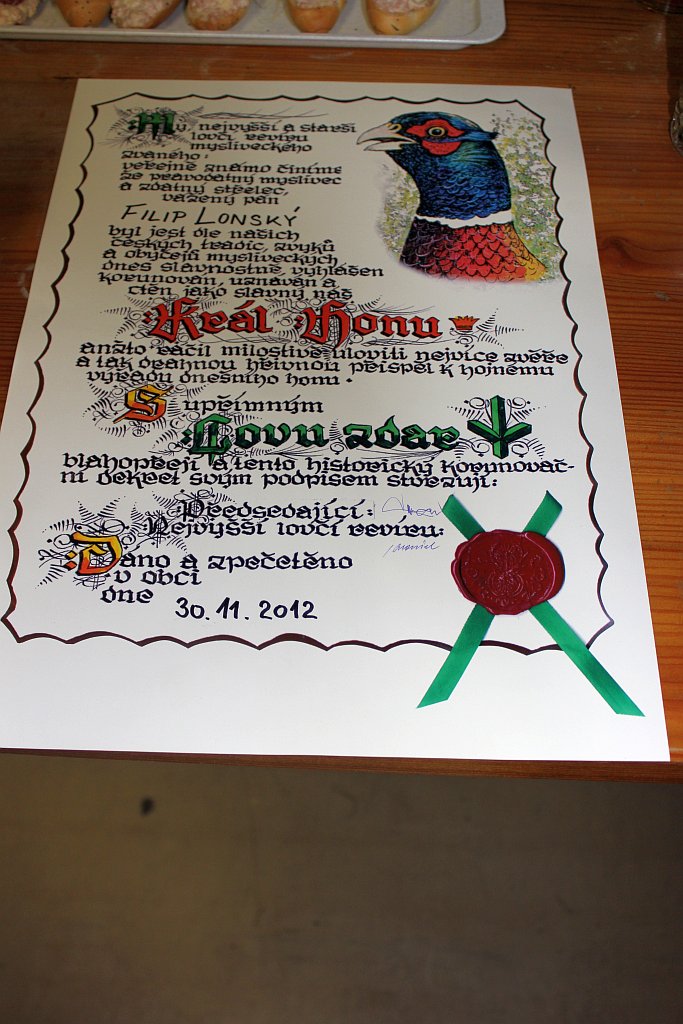 My, nejvyšší a starší
lovčí revíru
mysliveckého
zvaného:
veřejně známo činíme
že pravodatný myslivec
a zdatný střelec,
vážený pán
FILIP LONSKÝ
byl jest dle našich
českých tradic, zvyků
a obyčejů mysliveckých
dnes slavnostně vyhlášen
korunován, uznáván a
ctěn jako slavný náš
Král Honu
anžto ráčil milostivě uloviti nejvíce zvěře
a tak drahnou hřivnou přispěl k hojnému
výřadu dnešního honu.
S upřímným
Lovu zdar
blahopřeji a tento historický korunovač-
ní dekret svým podpisem stvrzuji:
Předsedající:
Nejvyšší lovčí revíru:
Dáno a zpečetěno
v obci
dne 30.11.2012